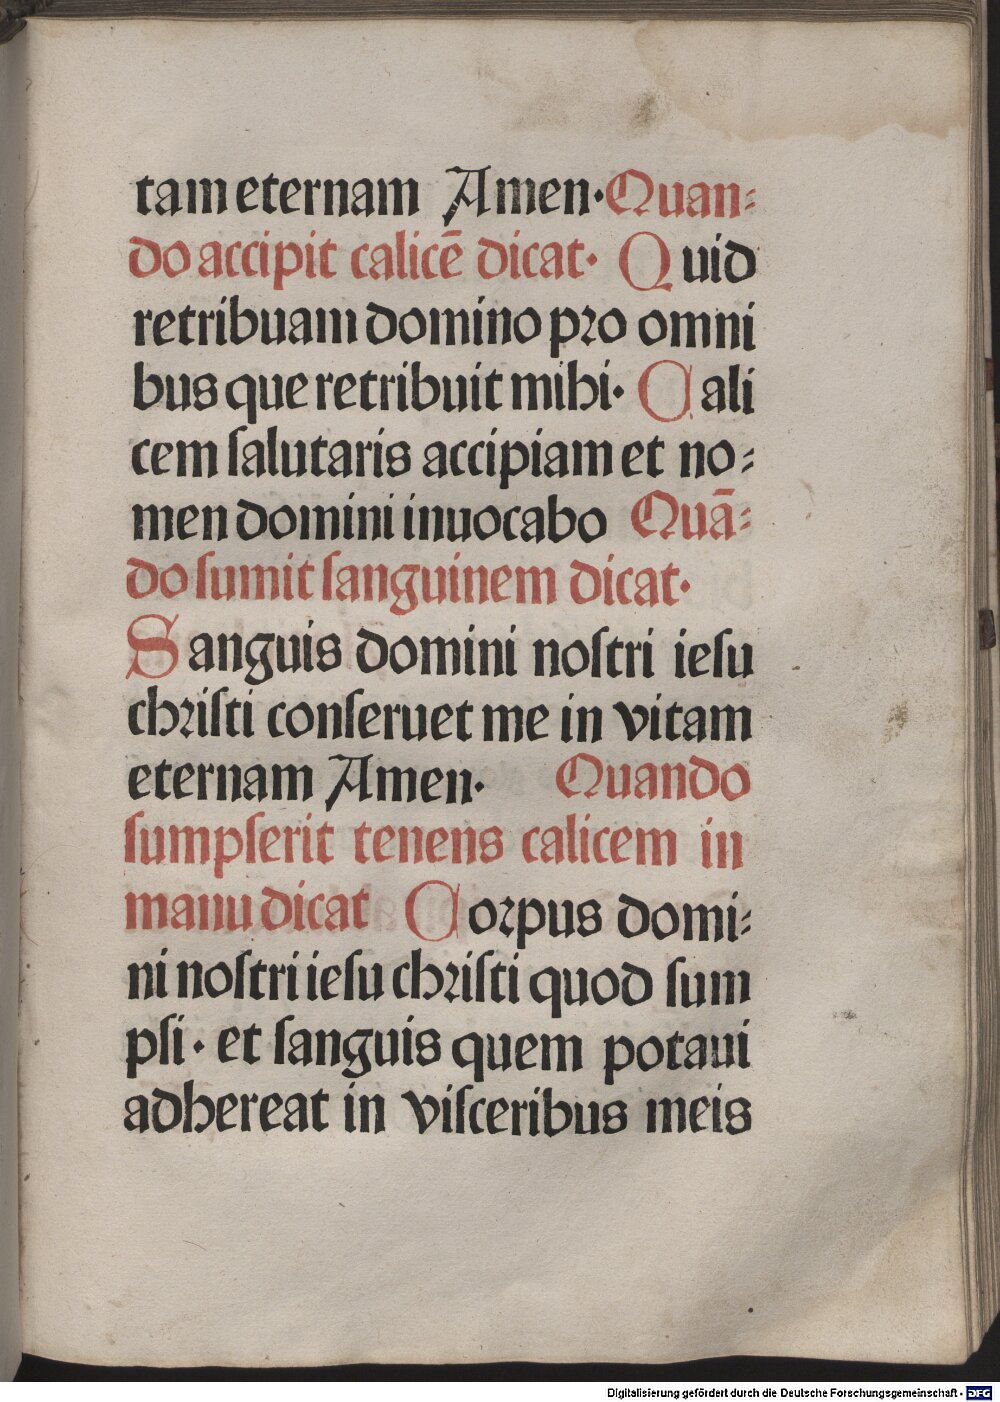 tam eternam Amen· Quan⸗
do accipit calicē dicat· Quid
retribuam domino pro omni
bus que retribuit mihi· Cali
cem ſalutaris accipiam et no⸗
men domini inuocabo Quā⸗
do ſumit ſanguinem dicat·
Sanguis domini noſtri ieſu
chriſti conſeruet me in vitam
eternam Amen· Quando
ſumpſerit tenens calicem in
manu dicat Corpus domi⸗
ni noſtri ieſu chriſti quod ſum
pſi· et ſanguis quem potaui
adhereat in viſceribus meis
Digitalisierung gefördert durch die Deutsche Forschungsgemeinschaft - DFG